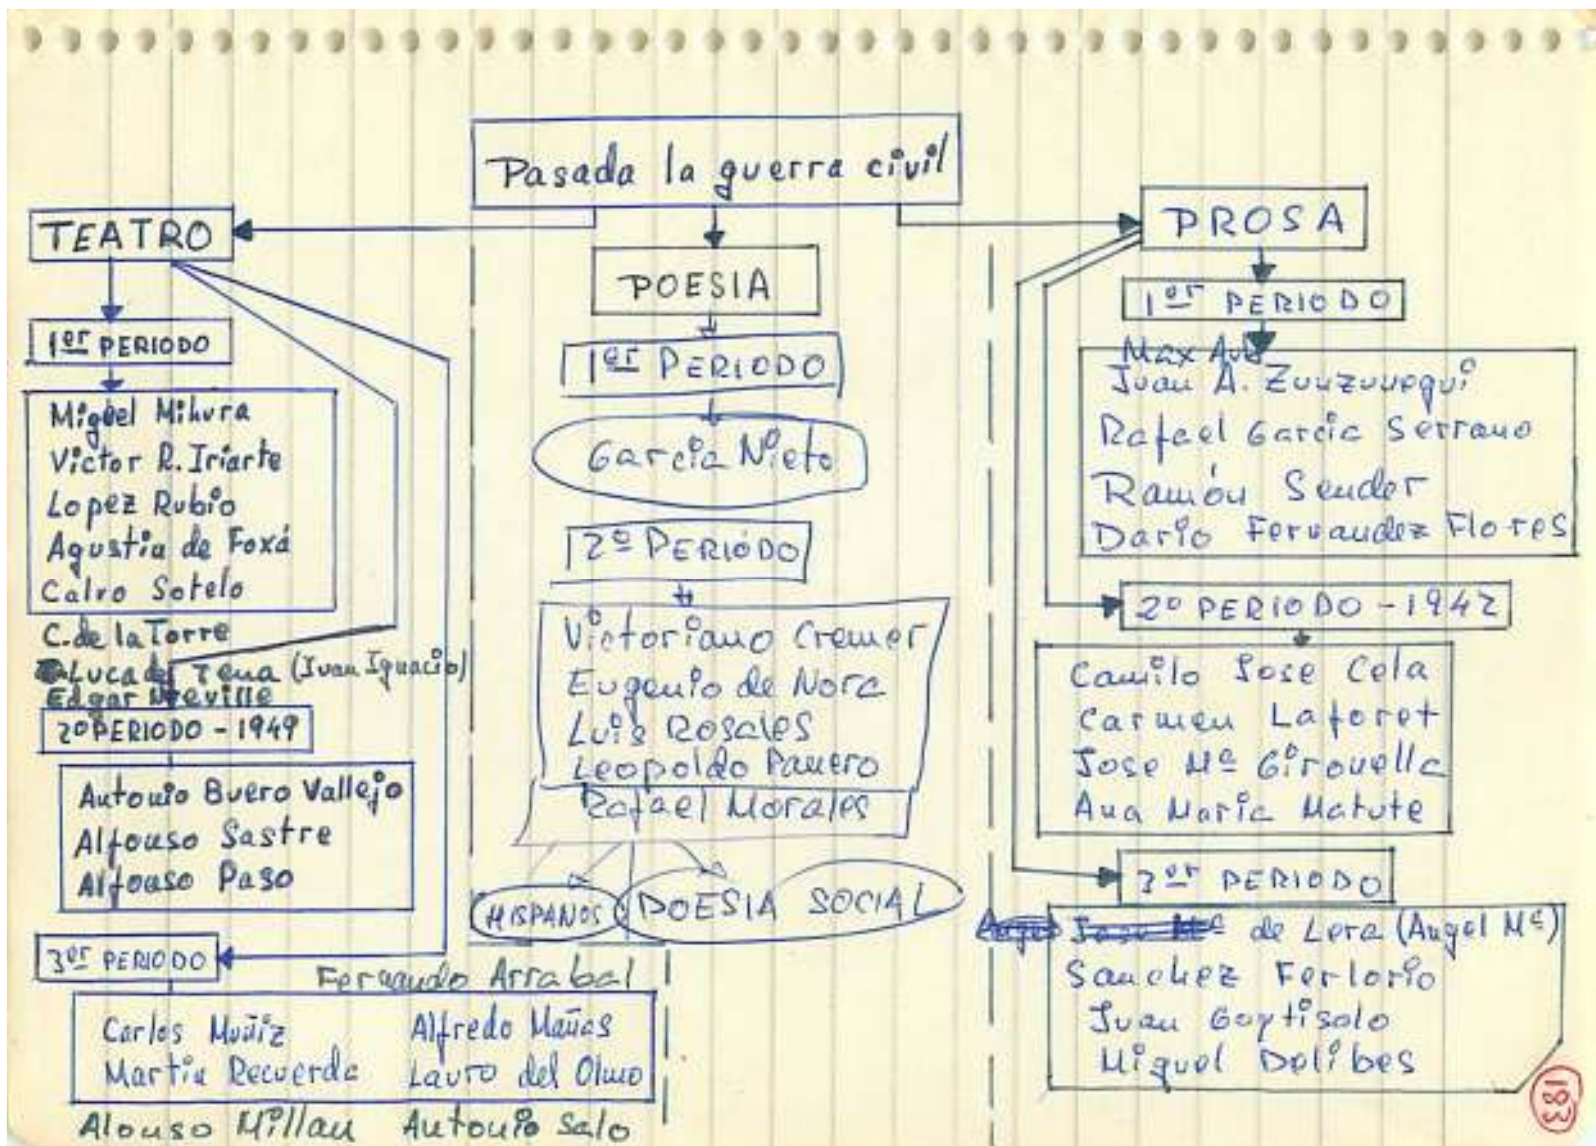 Pasada la guerra civil
TEATRO
1er PERIODO
Miguel Mihura
Victor R. Iriarte
Lopez Rubio
Agustin de Foxá
Calvo Sotelo
C. de la Torre
Luca de Tena (Juan Ignacio)
Edgar Neville
2º PERIODO - 1949
Antonio Buero Vallejo
Alfonso Sastre
Alfonso Paso
3er PERIODO
Fernando Arrabal
Carlos Muñiz Alfredo Mañas
Martin Recuerda Lauro del Olmo
Alonso Millan Antonio Salo
POESIA
1er PERIODO
Garcia Nieto
2º PERIODO
Victoriano Cremer
Eugenio de Nora
Luis Rosales
Leopoldo Panero
Rafael Morales
HISPANOS POESIA SOCIAL
PROSA
1er PERIODO
Max Aub
Juan A. Zunzunegui
Rafael Garcia Serrano
Ramón Sender
Dario Fernandez Flores
2º PERIODO - 1942
Camilo Jose Cela
Carmen Laforet
Jose Mª Gironella
Ana Maria Matute
3er PERIODO
de Lera (Angel Mª)
Sanchez Ferlorio
Juan Goytisolo
Miguel Delibes
183